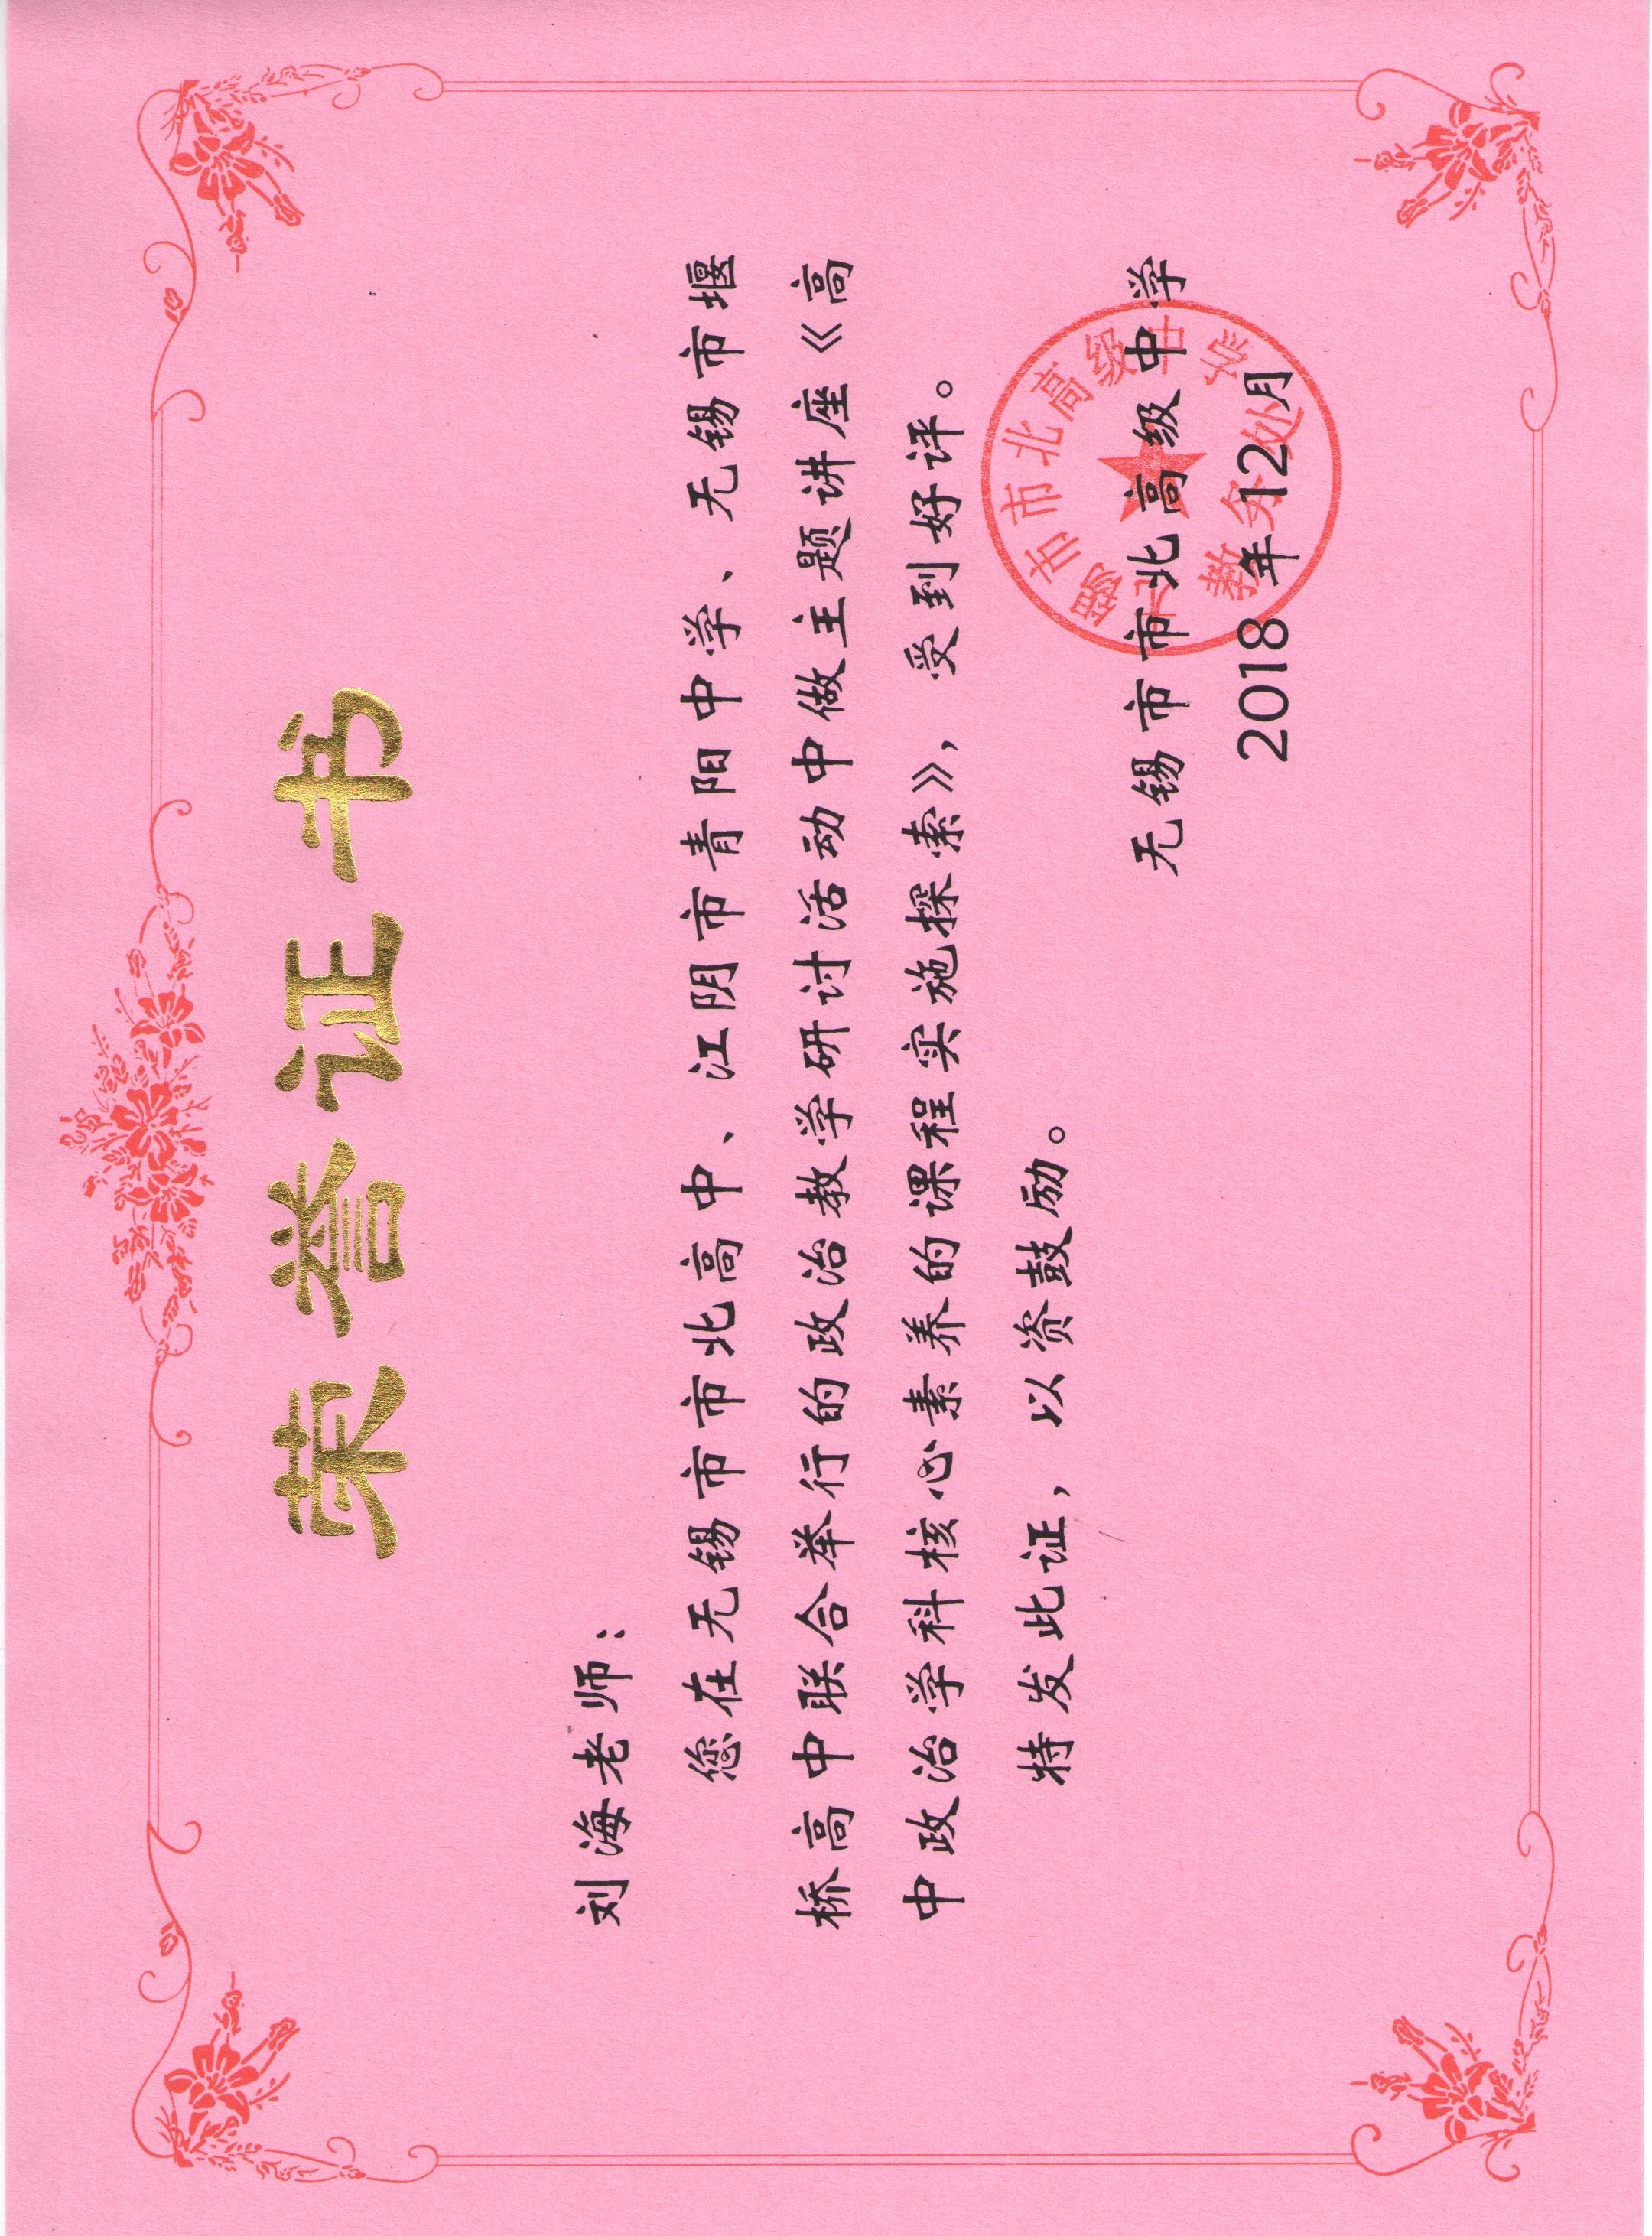 荣誉证书
刘海老师：
您在无锡市市北高中、江阴市青阳中学、无锡市堰
桥高中联合举行的政治教学研讨活动中做主题讲座《高
中政治学科核心素养的课程实施探索》，受到好评。
特发此证，以资鼓励。
无锡市市北高级中学
2018年12月
无锡市市北高级中学
教务处